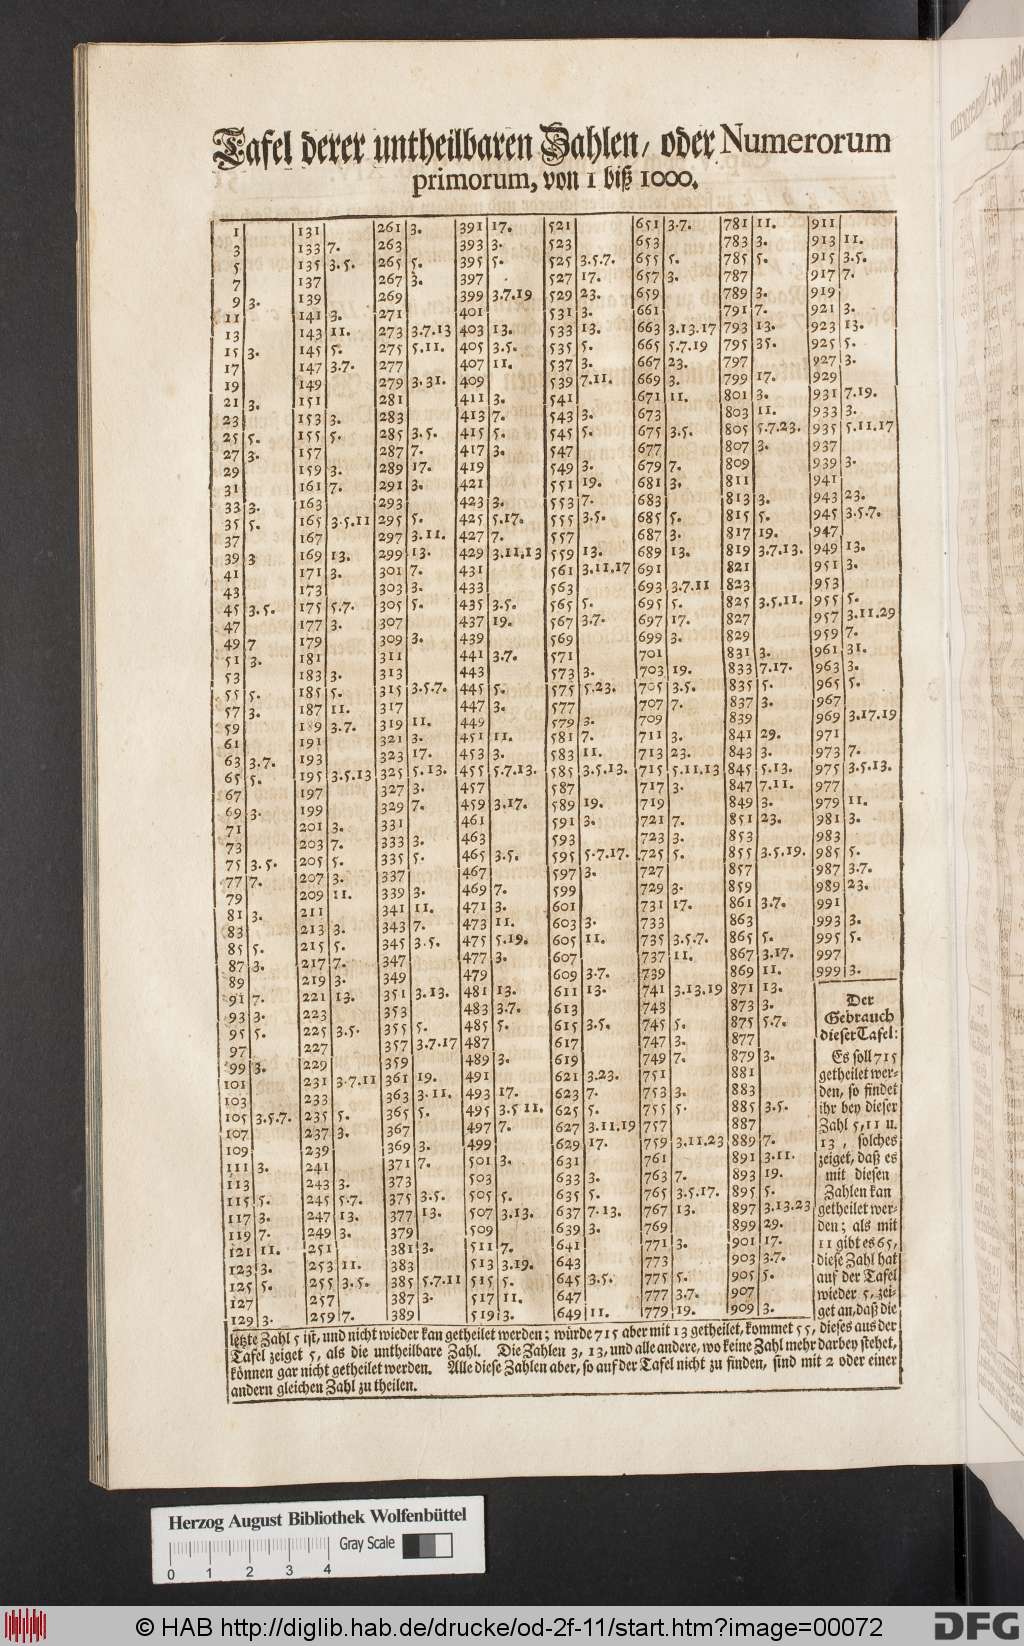 Tafel derer untheilbaren Zahlen, oder Numerorum
primorum, von 1 biß 1000.
1 131 261 3. 391 17. 521 651 3.7. 781 11. 911
3 133 7. 263 393 3. 523 653 783 3. 913 11.
5 135 3.5. 265 5. 395 5. 525 3.5.7. 655 5. 785 5. 915 3.5.
7 137 267 3. 397 527 17. 657 3. 787 917 7.
9 3. 139 269 399 3.7.19 529 23. 659 789 3. 919
11 141 3. 271 401 531 3. 661 791 7. 921 3.
13 143 11. 273 3.7.13 403 13. 533 13. 663 3.13.17 793 13. 923 13.
15 3. 145 5. 275 5.11. 405 3.5. 535 5. 665 5.7.19 795 35. 925 5.
17 147 3.7. 277 407 11. 537 3. 667 23. 797 927 3.
19 149 279 3.31. 409 539 7.11. 669 3. 799 17. 929
21 3. 151 281 411 3. 541 671 11. 801 3. 931 7.19.
23 153 3. 283 413 7. 543 3. 673 803 11. 933 3.
25 5. 155 5. 285 3.5. 415 5. 545 5. 675 3.5. 805 5.7.23. 935 5.11.17
27 3. 157 287 7. 417 3. 547 677 807 3. 937
29 159 3. 289 17. 419 549 3. 679 7. 809 939 3.
31 161 7. 291 3. 421 551 19. 681 3. 811 941
33 3. 163 293 423 3. 553 7. 683 813 3. 943 23.
35 5. 165 3.5.11 295 5. 425 5.17. 555 3.5. 685 5. 815 5. 945 3.5.7.
37 167 297 3.11. 427 7. 557 687 3. 817 19. 947
39 3 169 13. 299 13. 429 3.11.13 559 13. 689 13. 819 3.7.13. 949 13.
41 171 3. 301 7. 431 561 3.11.17 691 821 951 3.
43 173 303 3. 433 563 693 3.7.11 823 953
45 3.5. 175 5.7. 305 5. 435 3.5. 565 5. 695 5. 825 3.5.11. 955 5.
47 177 3. 307 437 19. 567 3.7. 697 17. 827 957 3.11.29
49 7 179 309 3. 439 569 699 3. 829 959 7.
51 3. 181 311 441 3.7. 571 701 831 3. 961 31.
53 183 3. 313 443 573 3. 703 19. 833 7.17. 963 3.
55 5. 185 5. 315 3.5.7. 445 5. 575 5.23. 705 3.5. 835 5. 965 5.
57 3. 187 11. 317 447 3. 577 707 7. 837 3. 967
59 189 3.7. 319 11. 449 579 3. 709 839 969 3.17.19
61 191 321 3. 451 11. 581 7. 711 3. 841 29. 971
63 3.7. 193 323 17. 453 3. 583 11. 713 23. 843 3. 973 7.
65 5. 195 3.5.13 325 5.13. 455 5.7.13. 585 3.5.13. 715 5.11.13 845 5.13. 975 3.5.13.
67 197 327 3. 457 587 717 3. 847 7.11. 977
69 3. 199 329 7. 459 3.17. 589 19. 719 849 3. 979 11.
71 201 3. 331 461 591 3. 721 7. 851 23. 981 3.
73 203 7. 333 3. 463 593 723 3. 853 983
75 3.5. 205 5. 335 5. 465 3.5. 595 5.7.17. 725 5. 855 3.5.19. 985 5.
77 7. 207 3. 337 467 597 3. 727 857 987 3.7.
79 209 11. 339 3. 469 7. 599 729 3. 859 989 23.
81 3. 211 341 11. 471 3. 601 731 17. 861 3.7. 991
83 213 3. 343 7. 473 11. 603 3. 733 863 993 3.
85 5. 215 5. 345 3.5. 475 5.19. 605 11. 735 3.5.7. 865 5. 995 5.
87 3. 217 7. 347 477 3. 607 737 11. 867 3.17. 997
89 219 3. 349 479 609 3.7. 739 869 11. 999 3.
91 7. 221 13. 351 3.13. 481 13. 611 13. 741 3.13.19 871 13.
93 3. 223 353 483 3.7. 613 743 873 3.
95 5. 225 3.5. 355 5. 485 5. 615 3.5. 745 5. 875 5.7.
97 227 357 3.7.17 487 617 747 3. 877
99 3. 229 359 489 3. 619 749 7. 879 3.
101 231 3.7.11 361 19. 491 621 3.23. 751 881
103 233 363 3.11. 493 17. 623 7. 753 3. 883
105 3.5.7. 235 5. 365 5. 495 3.5 11. 625 5. 755 5. 885 3.5.
107 237 3. 367 497 7. 627 3.11.19 757 887
109 239 369 3. 499 629 17. 759 3.11.23 889 7.
111 3. 241 371 7. 501 3. 631 761 891 3.11.
113 243 3. 373 503 633 3. 763 7. 893 19.
115 5. 245 5.7. 375 3.5. 505 5. 635 5. 765 3.5.17. 895 5.
117 3. 247 13. 377 13. 507 3.13. 637 7.13. 767 13. 897 3.13.23
119 7. 249 3. 379 509 639 3. 769 899 29.
121 11. 251 381 3. 511 7. 641 771 3. 901 17.
123 3. 253 11. 383 513 3.19. 643 773 903 3.7.
125 5. 255 3.5. 385 5.7.11 515 5. 645 3.5. 775 5. 905 5.
127 257 387 3. 517 11. 647 777 3.7. 907
129 3. 259 7. 389 519 3. 649 11. 779 19. 909 3.
Der
Gebrauch
dieser Tafel:
Es soll 715
getheilet wer-
den, so findet
ihr bey dieser
Zahl 5, 11 u.
13, solches
zeiget, daß es
mit diesen
Zahlen kan
getheilet wer-
den; als mit
11 gibt es 65,
diese Zahl hat
auf der Tafel
wieder 5, zei-
get an, daß die
letzte Zahl 5 ist, und nicht wieder kan getheilet werden; würde 715 aber mit 13 getheilet, kommet 55, dieses aus der
Tafel zeiget 5, als die untheilbare Zahl. Die Zahlen 3, 13, und alle andere, wo keine Zahl mehr darbey stehet,
können gar nicht getheilet werden. Alle diese Zahlen aber, so auf der Tafel nicht zu finden, sind mit 2 oder einer
andern gleichen Zahl zu theilen.
Herzog August Bibliothek Wolfenbüttel
Gray Scale
0 1 2 3 4
© HAB http://diglib.hab.de/drucke/od-2f-11/start.htm?image=00072
DFG